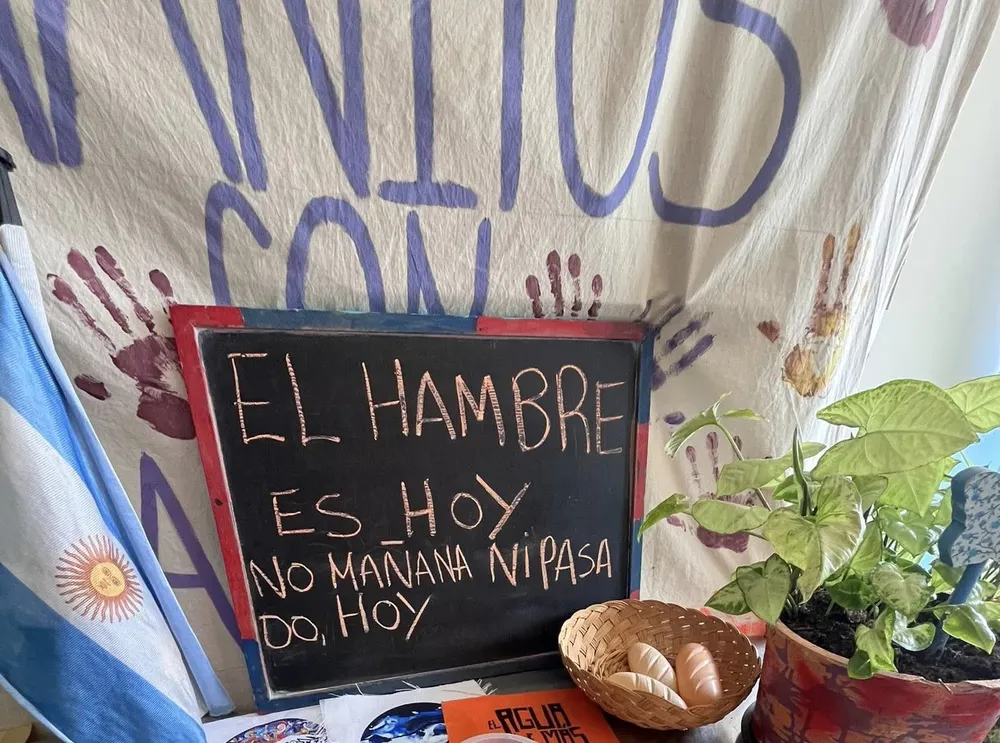 ANITOS
CON
EL HAMBRE
ES HOY
NO MAÑANA NI PASA
DO, HOY
EL AGUA
MAS